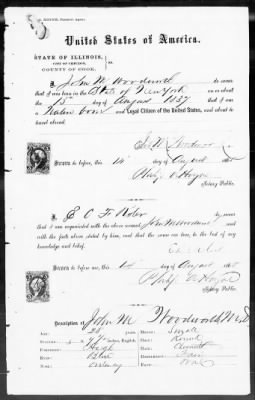 United States of America.
STATE OF ILLINOIS,
CITY OF CHICAGO,
COUNTY OF COOK.
ss.
I, John M. Woodworth do swear
that I was born in the State of New York on or about
the 15 day of August 1837 that I am a
and Loyal Citizen of the United States, and about
to travel abroad.
Sworn to before me, this 14 day of August
Philip A. Hoyne
Notary Public.
I, E. C. F.
that I am acquainted with the above named John M Woodworth and
with the facts above stated by him, and that the same are true, to the best of my
knowledge and belief.
Sworn to before me, this 14 day of August
Philip A. Hoyne
Notary Public.
Description of John M Woodworth M.D.
Age: 28
Stature: English,
Forehead: High
Eyes: Blue
Nose:
Mouth:
Chin: Round
Hair:
Complexion: Fair
Face: Oval